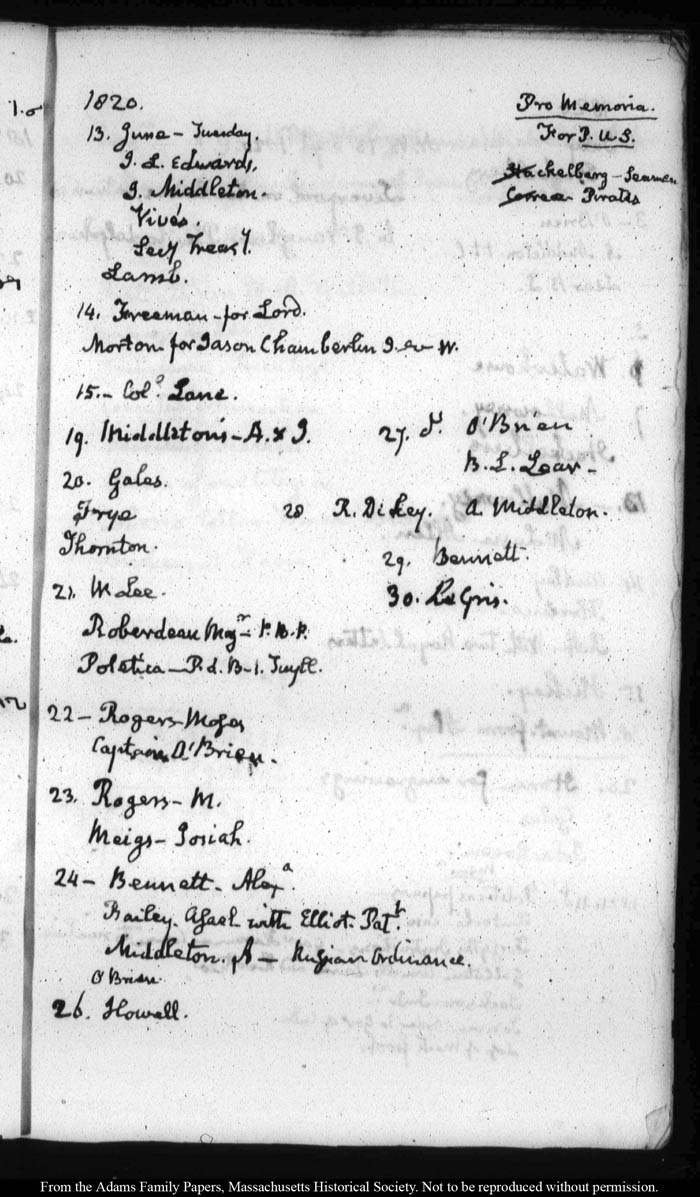 1820.
13. June - Tuesday.
J. L. Edwards.
J. Middleton.
Vivés.
Secy Treasy.
Lamb.
14. Freeman - for Lord.
Morton for Jason Chamberlin
15. - Coll. Lane.
19. Middleton's - A. & J.
20. Gales.
Frye
Thornton.
21. McLee.
Roberdeau Majr
Poletica - R. d. B - l. Tuyll.
22 - Rogers - Moses
Captain O'Brien.
23. Rogers - M.
Meigs - Josiah.
24 - Bennett - Alexa.
Bailey. Asael with Elliot. Patt.
Middleton. A - Russian Ordinance.
O'Brien.
26. Howell.
Pro Memoria.
For P. U.S.
Stackelberg - Seamen
Correa - Pirates
27. O'Brien
B. L. Lear -
28 R. Dickey. A. Middleton.
29. Bennett.
30. LeGris.
From the Adams Family Papers, Massachusetts Historical Society. Not to be reproduced without permission.